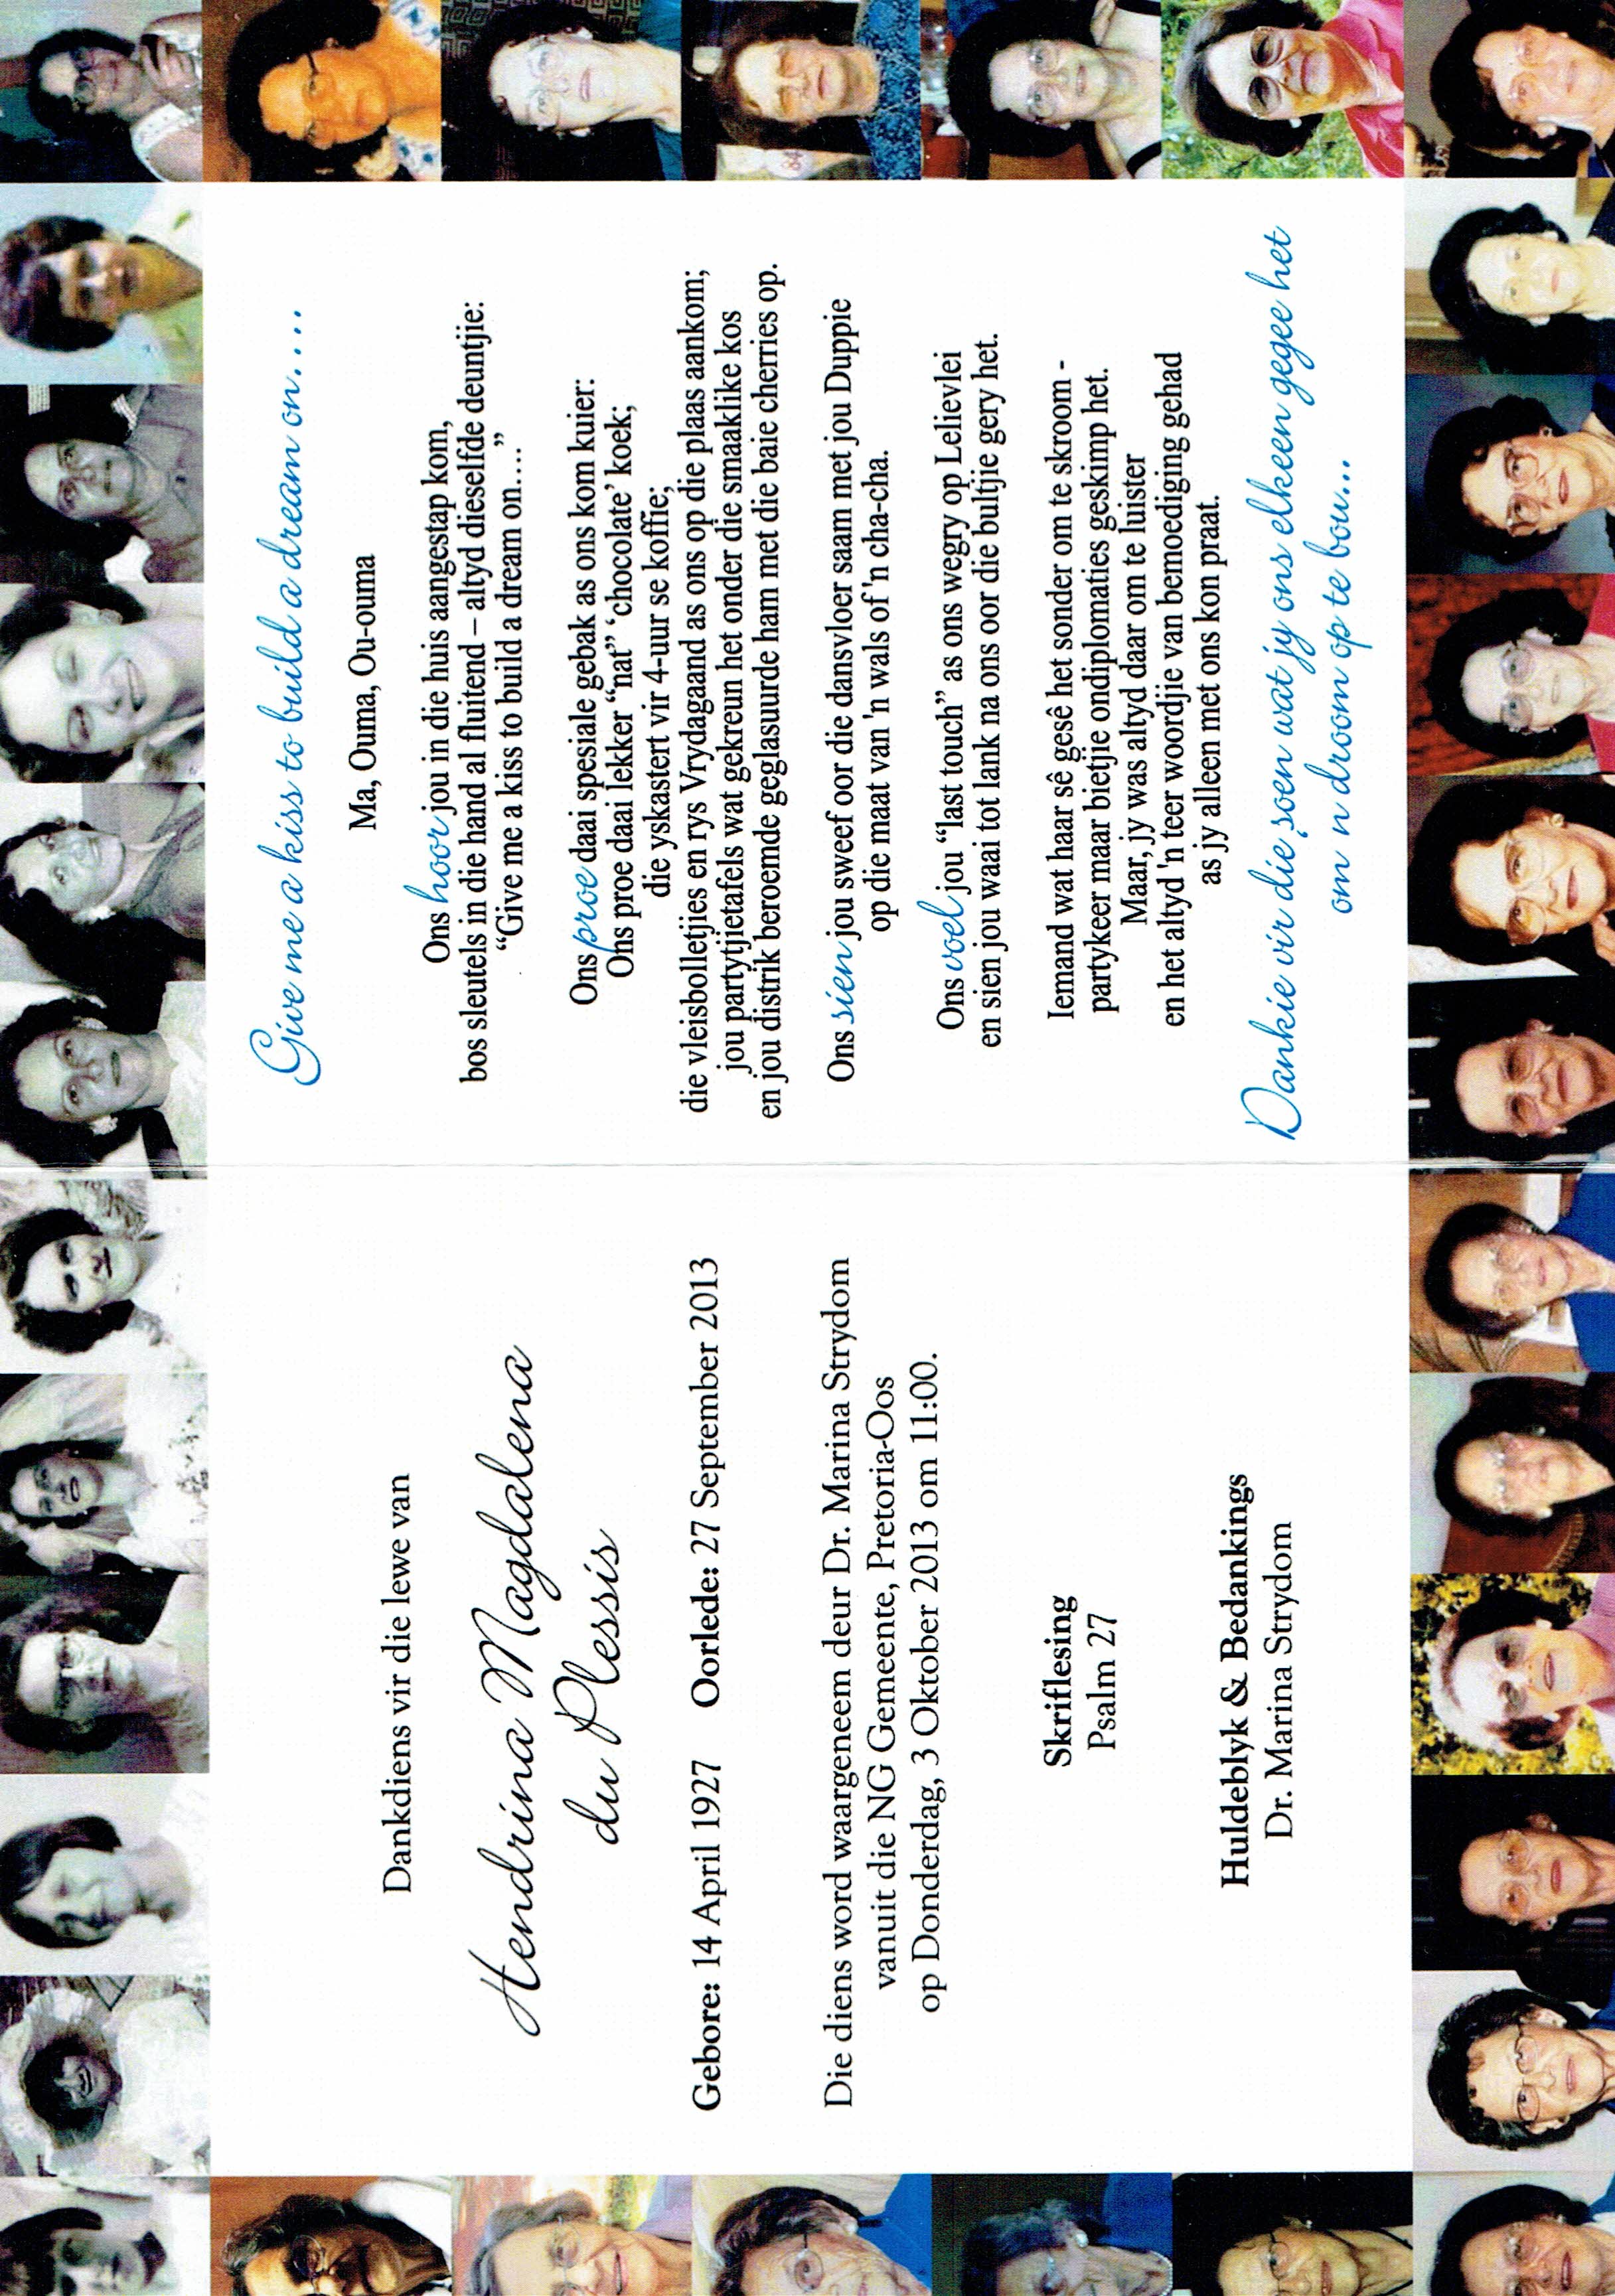 Dankdiens vir die lewe van
Hendrina Magdalena
du Plessis
Gebore: 14 April 1927 Oorlede: 27 September 2013
Die diens word waargeneem deur Dr. Marina Strydom
vanuit die NG Gemeente, Pretoria-Oos
op Donderdag, 3 Oktober 2013 om 11:00.
Skriflesing
Psalm 27
Huldeblyk & Bedankings
Dr. Marina Strydom
Give me a kiss to build a dream on....
Ma, Ouma, Ou-ouma
Ons hoor jou in die huis aangestap kom,
bos sleutels in die hand al fluitend – altyd dieselfde deuntjie:
“Give me a kiss to build a dream on....”
Ons proe daai spesiale gebak as ons kom kuier:
Ons proe daai lekker “nat” ‘chocolate’ koek;
die yskastert vir 4-uur se koffie;
die vleisbolletjies en rys Vrydagaand as ons op die plaas aankom;
jou partytjietafels wat gekreun het onder die smaaklike kos
en jou distrik beroemde geglasuurde ham met die baie cherries op.
Ons sien jou sweef oor die dansvloer saam met jou Duppie
op die maat van 'n wals of 'n cha-cha.
Ons voel jou “last touch” as ons wegry op Lelievlei
en sien jou waai tot lank na ons oor die bultjie gery het.
Iemand wat haar sê gesê het sonder om te skroom -
partykeer maar bietjie ondiplomaties geskimp het.
Maar, jy was altyd daar om te luister
en het altyd 'n teer woordjie van bemoediging gehad
as jy alleen met ons kon praat.
Dankie vir die soen wat jy ons elkeen gegee het
om n droom op te bou...